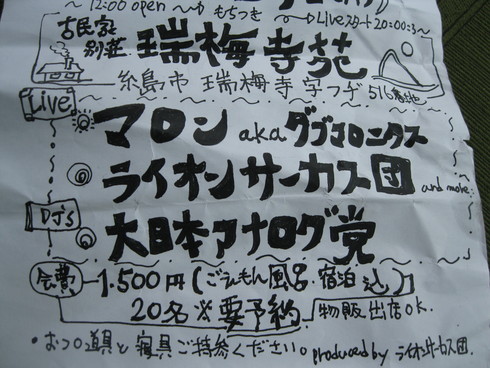 ~ 12:00 open ~ もちつき ~ Liveスタート20:00:ろ~
古民家
別荘 瑞梅寺苑
糸島市 瑞梅寺字つヂ516番地
Live
マロン aka ダブマロニクス
ライオンサーカス団 and more
DJ's
大日本アナログ党
会費 1.500円(ごえもん風呂・宿泊込)
20名 ※要予約 物販出店ok.
・おフロ道具と寝具ご持参ください。produced by ライオンサーカス団.